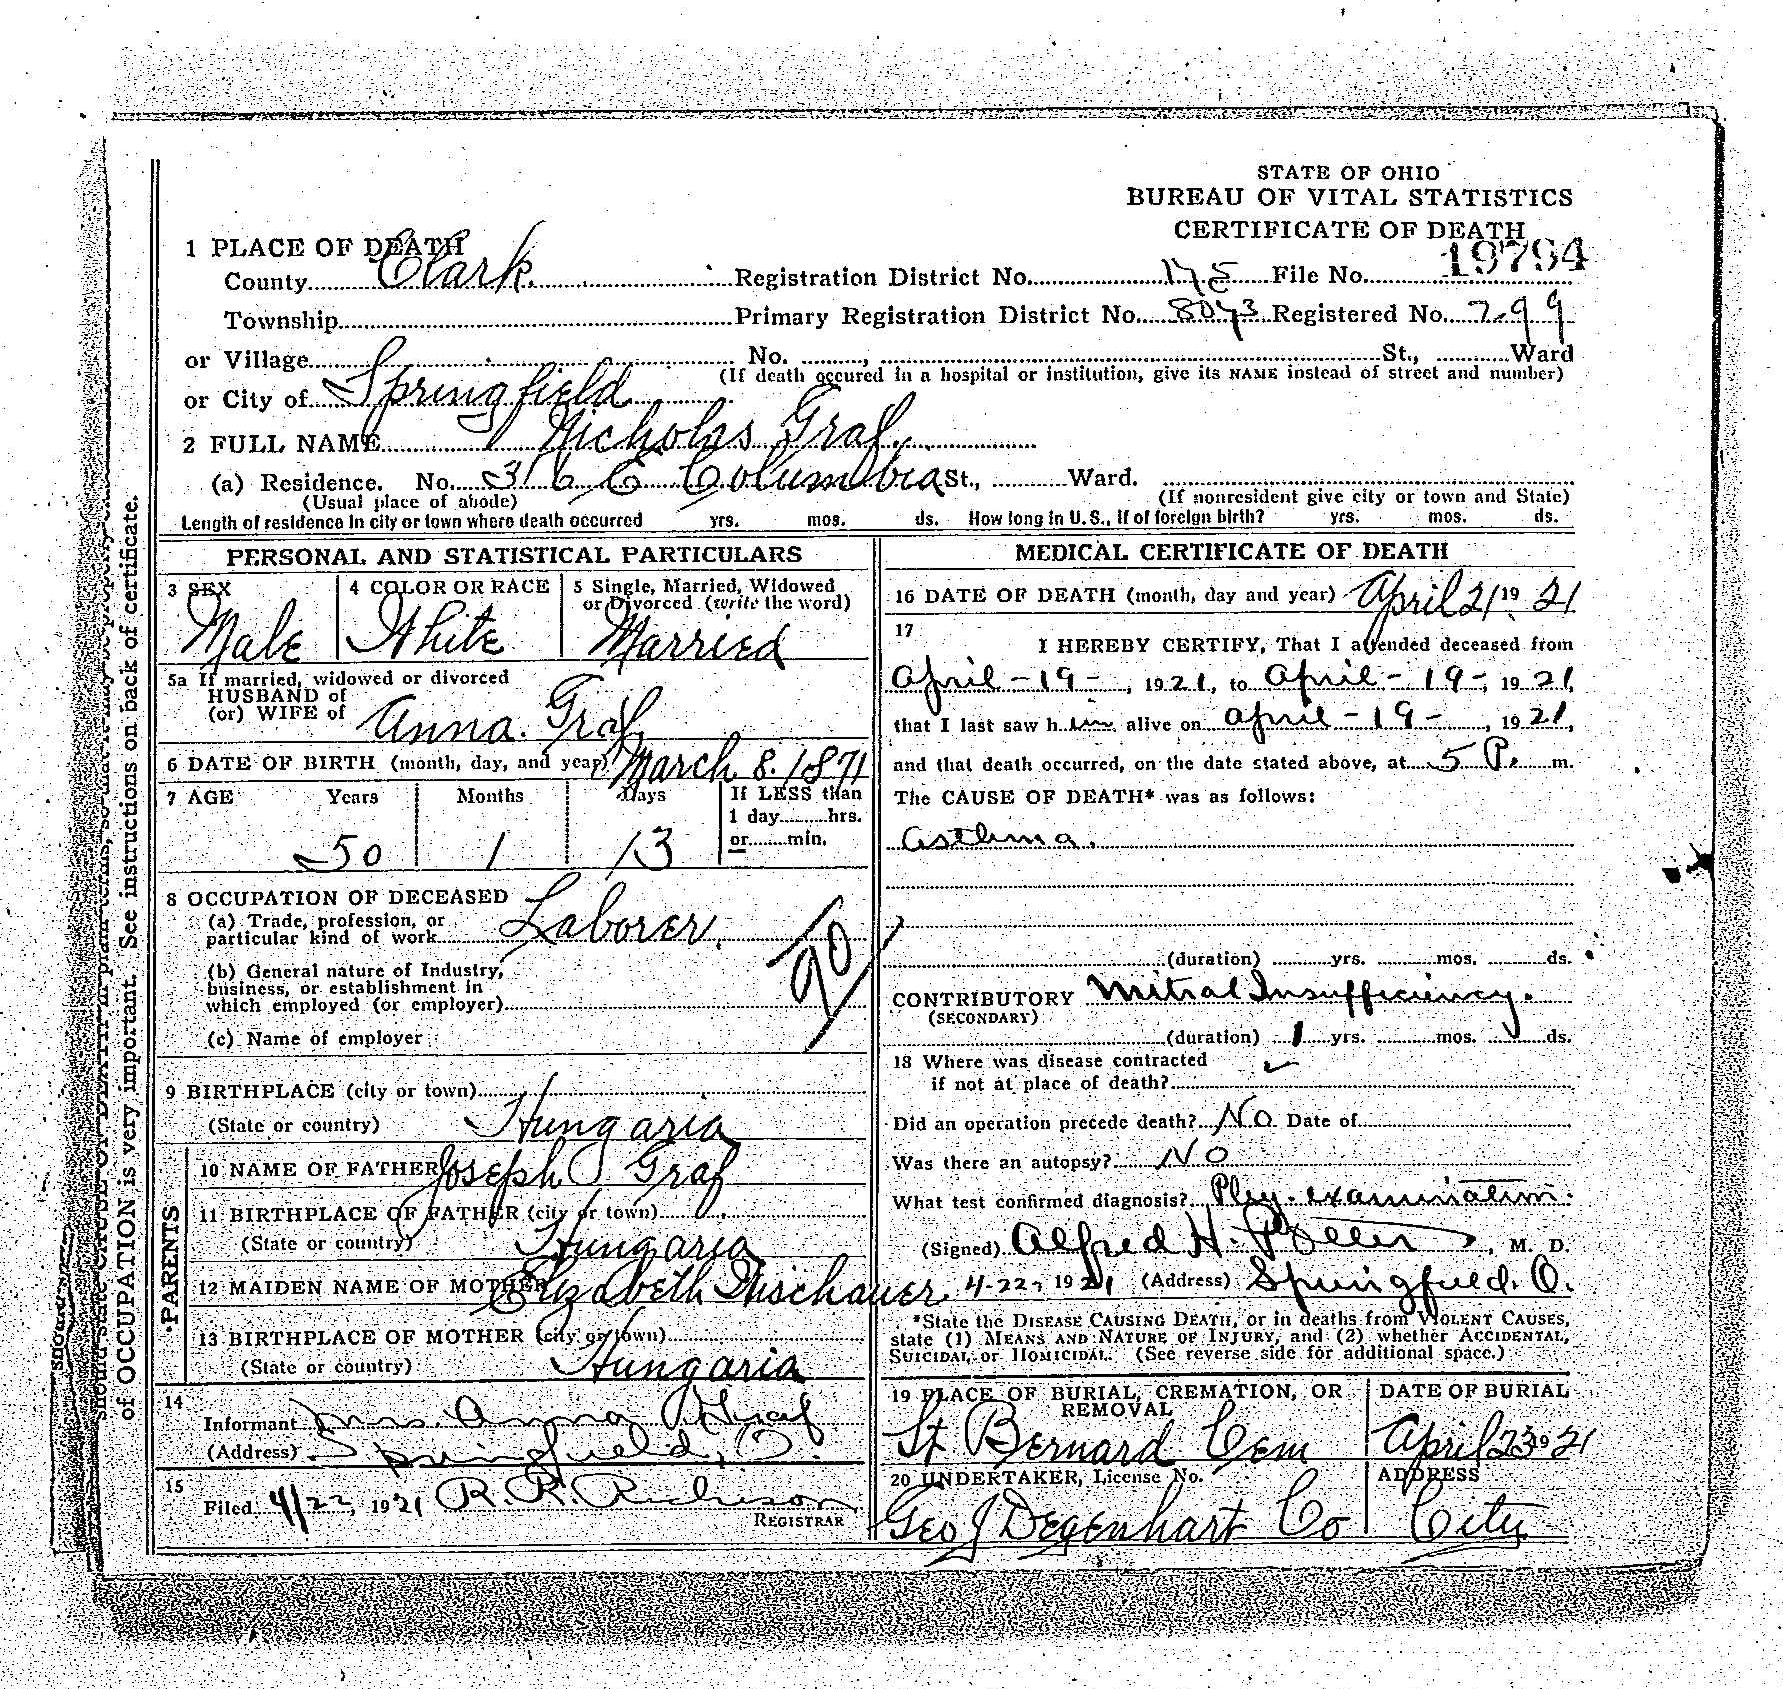 STATE OF OHIO
BUREAU OF VITAL STATISTICS
CERTIFICATE OF DEATH
1 PLACE OF DEATH
County Clark Registration District No. 175 File No. 19794
Township Primary Registration District No. 8073 Registered No. 799
or Village No. , St., Ward
(If death occured in a hospital or institution, give its NAME instead of street and number)
or City of Springfield
2 FULL NAME Nicholas Graf.
(a) Residence. No. 316 E Columbia St., Ward.
(Usual place of abode) (If nonresident give city or town and State)
Length of residence in city or town where death occurred yrs. mos. ds. How long in U. S., if of foreign birth? yrs. mos. ds.
PERSONAL AND STATISTICAL PARTICULARS
3 SEX
Male
4 COLOR OR RACE
White
5 Single, Married, Widowed
or Divorced (write the word)
Married
5a If married, widowed or divorced
HUSBAND of
(or) WIFE of Anna Graf
6 DATE OF BIRTH (month, day, and year) March 8. 1871
7 AGE Years Months Days If LESS than
1 day hrs.
or min.
50 1 13
8 OCCUPATION OF DECEASED
(a) Trade, profession, or
particular kind of work Laborer.
90
(b) General nature of Industry,
business, or establishment in
which employed (or employer)
(c) Name of employer
9 BIRTHPLACE (city or town)
(State or country) Hungaria
PARENTS
10 NAME OF FATHER Joseph Graf
11 BIRTHPLACE OF FATHER (city or town)
(State or country) Hungaria
12 MAIDEN NAME OF MOTHER Elizabeth
13 BIRTHPLACE OF MOTHER (city or town)
(State or country) Hungaria
14
Informant Mrs. Anna Graf
(Address) Springfield, O.
15
Filed 4/22, 1921 R. R. Richison
REGISTRAR
MEDICAL CERTIFICATE OF DEATH
16 DATE OF DEATH (month, day and year) April 21 19 21
17
I HEREBY CERTIFY, That I attended deceased from
April - 19 - , 1921, to April - 19 - , 1921,
that I last saw him alive on April - 19 - , 1921,
and that death occurred, on the date stated above, at 5 P. m.
The CAUSE OF DEATH* was as follows:
Asthma.
(duration) yrs. mos. ds.
CONTRIBUTORY Mitral Insufficiency.
(SECONDARY)
(duration) 1 yrs. mos. ds.
18 Where was disease contracted
if not at place of death?
Did an operation precede death? No Date of
Was there an autopsy? No
What test confirmed diagnosis? Phy. examination.
(Signed) Alfred H. , M. D.
4-22, 1921 (Address) Springfield. O.
*State the DISEASE CAUSING DEATH, or in deaths from VIOLENT CAUSES,
state (1) MEANS AND NATURE OF INJURY, and (2) whether ACCIDENTAL,
SUICIDAL, or HOMICIDAL. (See reverse side for additional space.)
19 PLACE OF BURIAL, CREMATION, OR
REMOVAL
St Bernard Cem
DATE OF BURIAL
April 23 19 21
20 UNDERTAKER, License No.
Geo J Degenhart Co
ADDRESS
City
of OCCUPATION is very important. See instructions on back of certificate.